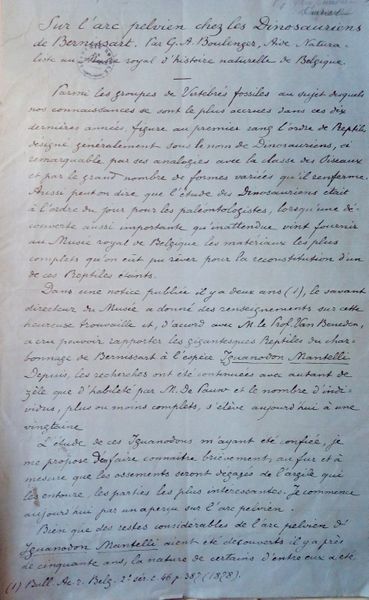 Sur l'arc pelvien chez les Dinosauriens
de Bernissart. Par G. A. Boulenger, Aide Natura-
liste au Musée royal d'histoire naturelle de Belgique.
Parmi les groupes de Vertébrés fossiles au sujet desquels
nos connaissances se sont le plus accrues dans ces dix
dernières années, figure au premier rang l'ordre de Reptiles
désigné généralement sous le nom de Dinosauriens, si
remarquable par ses analogies avec la classe des Oiseaux
et par le grand nombre de formes variées qu'il renferme.
Aussi peut on dire que l'étude des Dinosauriens était
à l'ordre du jour pour les paléontologistes, lorsqu'une dé-
couverte aussi importante qu'inattendue vint fournir
au Musée royal de Belgique les matériaux les plus
complets qu'on eût pu rêver pour la reconstitution d'un
de ces Reptiles éteints.
Dans une notice publiée il y a deux ans (1), le savant
directeur du Musée a donné des renseignements sur cette
heureuse trouvaille et, d'accord avec M. le Prof. Van Beneden,
a cru pouvoir rapporter les gigantesques Reptiles du char-
bonnage de Bernissart à l'espèce Iguanodon Mantelli
Depuis, les recherches ont été continuées avec autant de
zèle que d'habileté par M. De Pauw et le nombre d'indi-
vidus, plus ou moins complets, s'élève aujourd'hui à une
vingtaine
L'étude de ces Iguanodons m'ayant été confiée, je
me propose d'en faire connaître brièvement, au fur et à
mesure que les ossements seront dégagés de l'argile qui
les entoure, les parties les plus intéressantes. Je commence
aujourd'hui par un aperçu sur l'arc pelvien.
Bien que des restes considérables de l'arc pelvien d'
Iguanodon Mantelli aient été découverts il y a près
de cinquante ans, la nature de certains d'entre eux a été
(1) Bull. Ac. r. Belg. 2e sér. t. 46 p. 387 (1878).